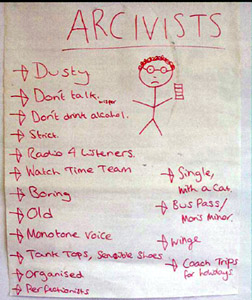 ARCIVISTS
Dusty
Don't talk. whisper
Don't drink alcohol.
Strict.
Radio 4 Listeners.
Watch Time Team
Boring
Old
Monotone Voice
Tank Tops, Sensible Shoes
Organised
Perfectionists
Single,
with a Cat.
Bus Pass/
Moris minor.
winge
Coach Trips
for holidays